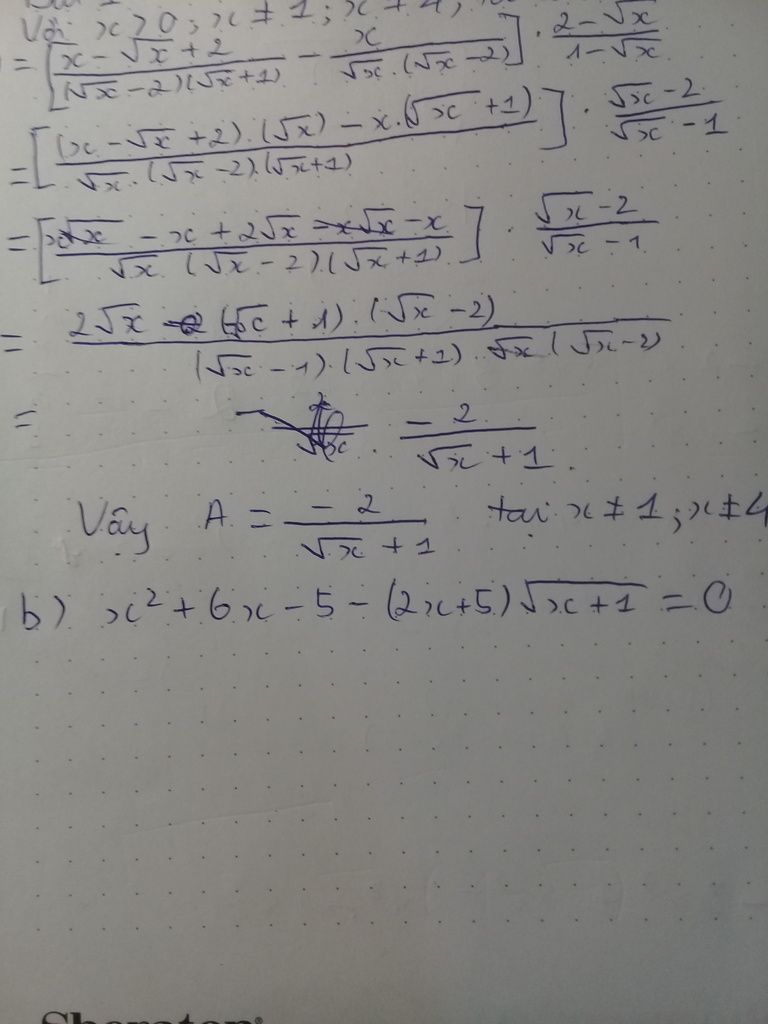 Với x > 0 ; x ≠ 1 ; x ≠ 4 ;
= [ (x - √x + 2) / ((√x - 2)(√x + 1)) - x / (√x . (√x - 2)) ] . (2 - √x) / (1 - √x)
= [ ((x - √x + 2) . (√x) - x . (√x + 1)) / (√x . (√x - 2) . (√x + 1)) ] . (√x - 2) / (√x - 1)
= [ (x√x - x + 2√x - x√x - x) / (√x (√x - 2) (√x + 1)) ] . (√x - 2) / (√x - 1)
= (2√x (√x + 1) . (√x - 2)) / ((√x - 1) . (√x + 1) . √x (√x - 2))
= (- 2) / (√x + 1) .
Vây A = (- 2) / (√x + 1) tại x ≠ 1 ; x ≠ 4
b) x² + 6x - 5 - (2x + 5) √(x + 1) = 0